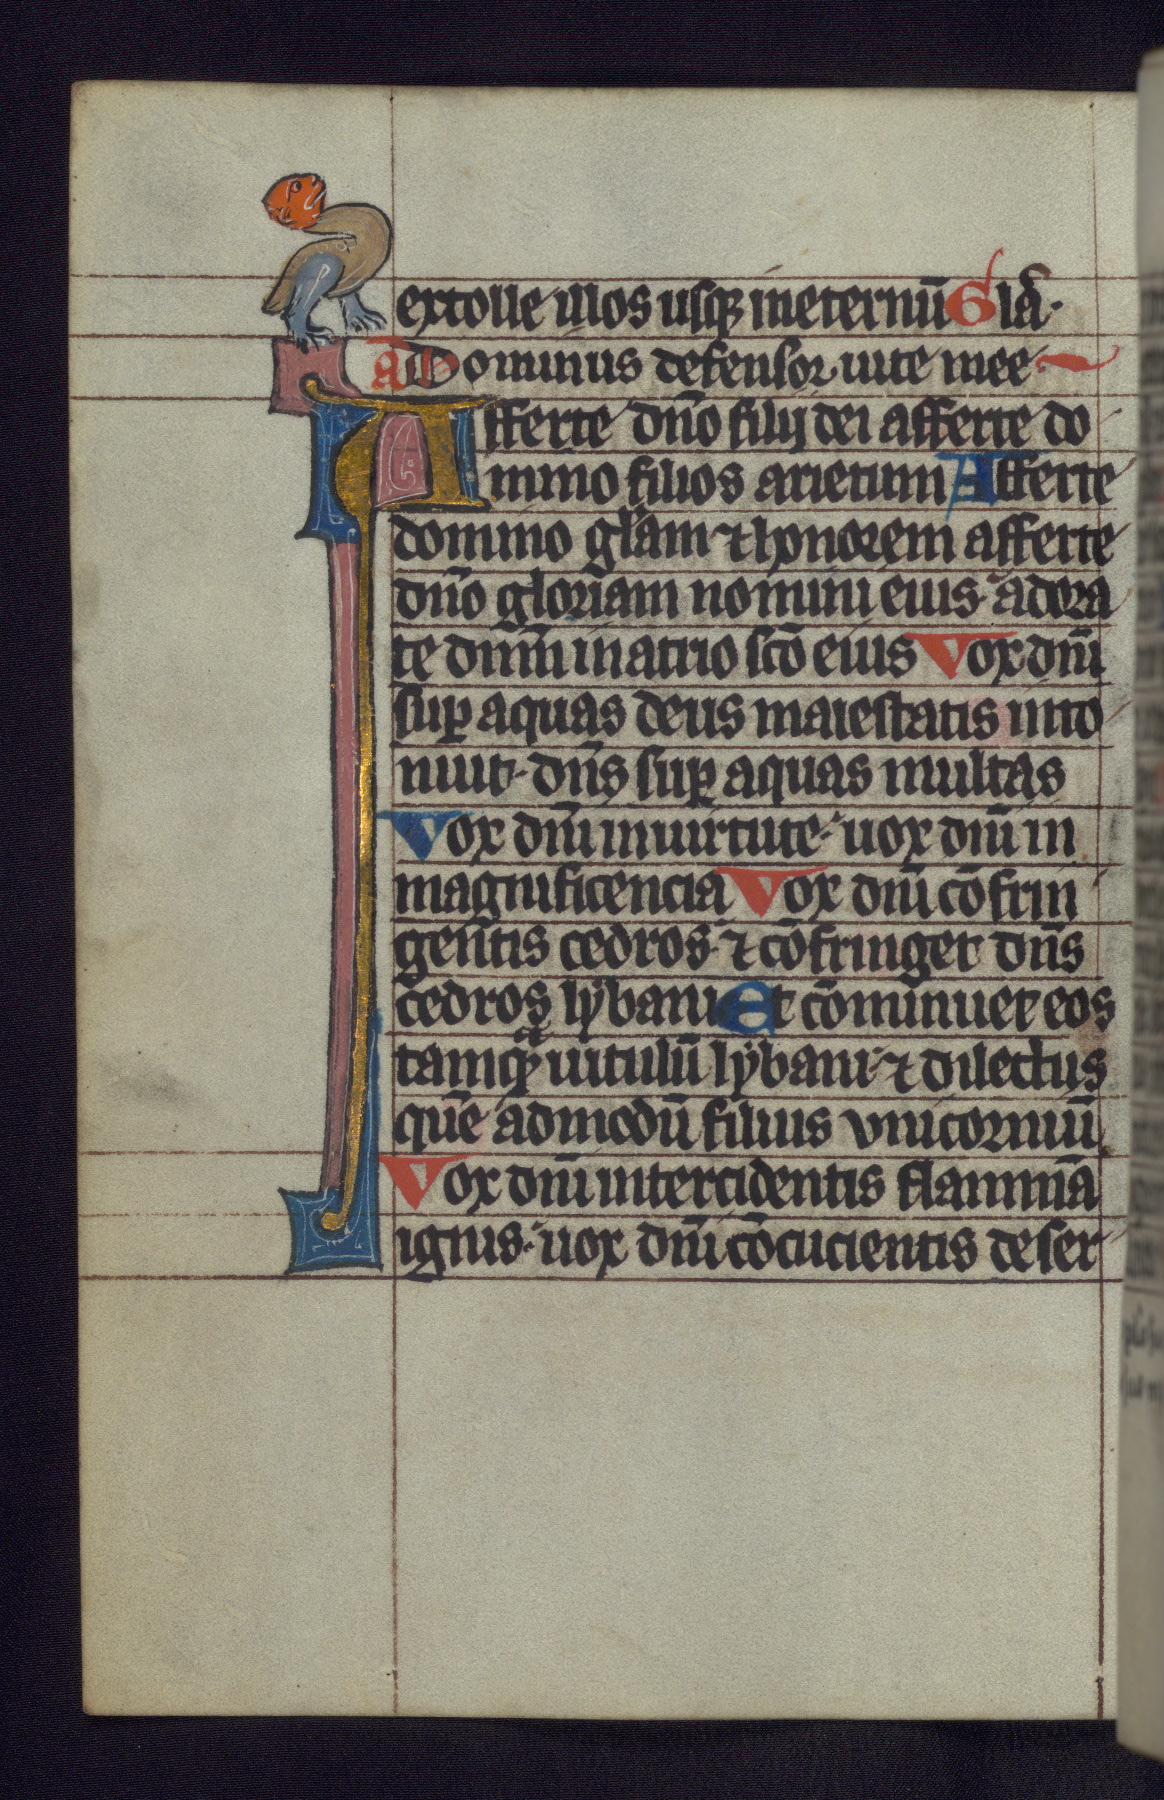 extolle illos usq; ineternū Glā.
añ Dominus defensor uite mee
Afferte dn̄o filij dei afferte do
mino filios arietum Afferte
domino gl̄am ⁊ honorem afferte
dn̄o gloriam nomini eius adora
te dn̄m in atrio sc̄o eius Vox dn̄i
sup aquas deus maiestatis into
nuit. dn̄s sup aquas multas
Vox dn̄i inuirtute. uox dn̄i in
magnificencia Vox dn̄i cōfrin
gentis cedros. ⁊ cōfringet dn̄s
cedros lybani Et cōminuet eos
tamq̄ uitulū lybani. ⁊ dilectus
quē admodū filius vnicorniū
Vox dn̄i intercidentis flammā
ignis. uox dn̄i cōcucientis deser